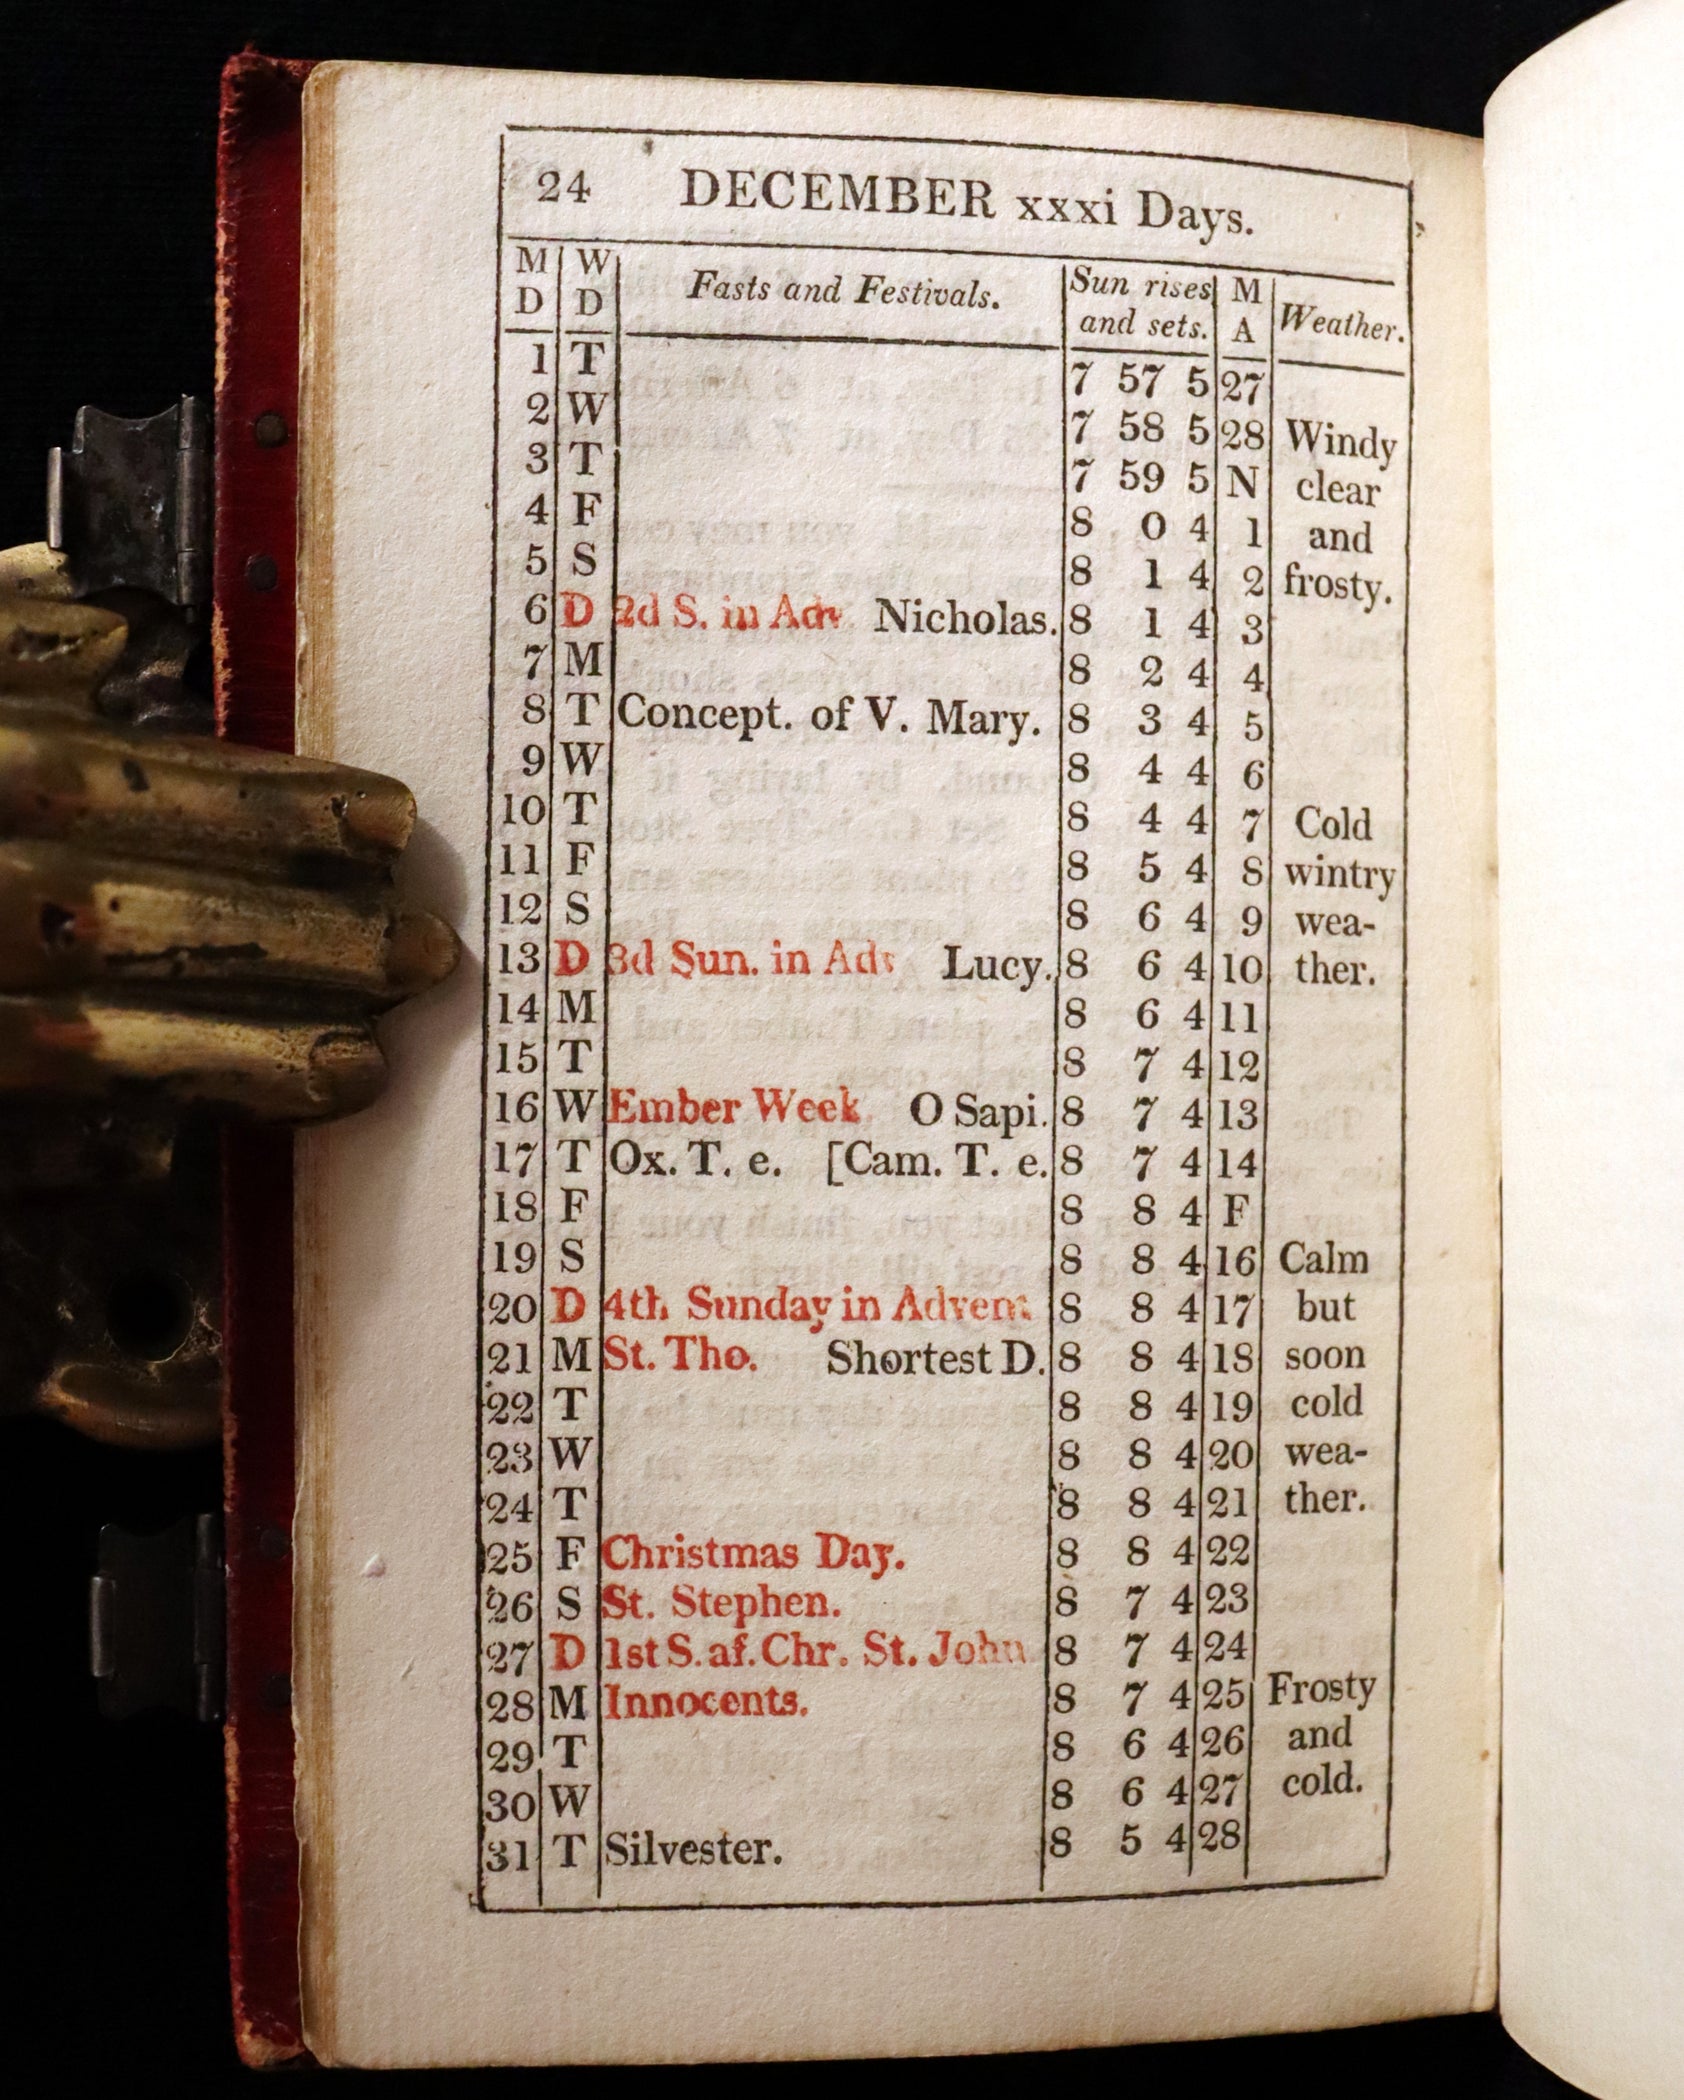 24 DECEMBER xxxi Days.
M D W D Fasts and Festivals. Sun rises and sets. M A Weather.
1 T 7 57 5 27
2 W 7 58 5 28 Windy
3 T 7 59 5 N clear
4 F 8 0 4 1 and
5 S 8 1 4 2 frosty.
6 D 2d S. in Adv Nicholas. 8 1 4 3
7 M 8 2 4 4
8 T Concept. of V. Mary. 8 3 4 5
9 W 8 4 4 6
10 T 8 4 4 7 Cold
11 F 8 5 4 8 wintry
12 S 8 6 4 9 wea-
13 D 3d Sun. in Adv Lucy. 8 6 4 10 ther.
14 M 8 6 4 11
15 T 8 7 4 12
16 W Ember Week O Sapi. 8 7 4 13
17 T Ox. T. e. [Cam. T. e. 8 7 4 14
18 F 8 8 4 F
19 S 8 8 4 16 Calm
20 D 4th Sunday in Advent 8 8 4 17 but
21 M St. Tho. Shortest D. 8 8 4 18 soon
22 T 8 8 4 19 cold
23 W 8 8 4 20 wea-
24 T 8 8 4 21 ther.
25 F Christmas Day. 8 8 4 22
26 S St. Stephen. 8 7 4 23
27 D 1st S. af. Chr. St. John 8 7 4 24
28 M Innocents. 8 7 4 25 Frosty
29 T 8 6 4 26 and
30 W 8 6 4 27 cold.
31 T Silvester. 8 5 4 28